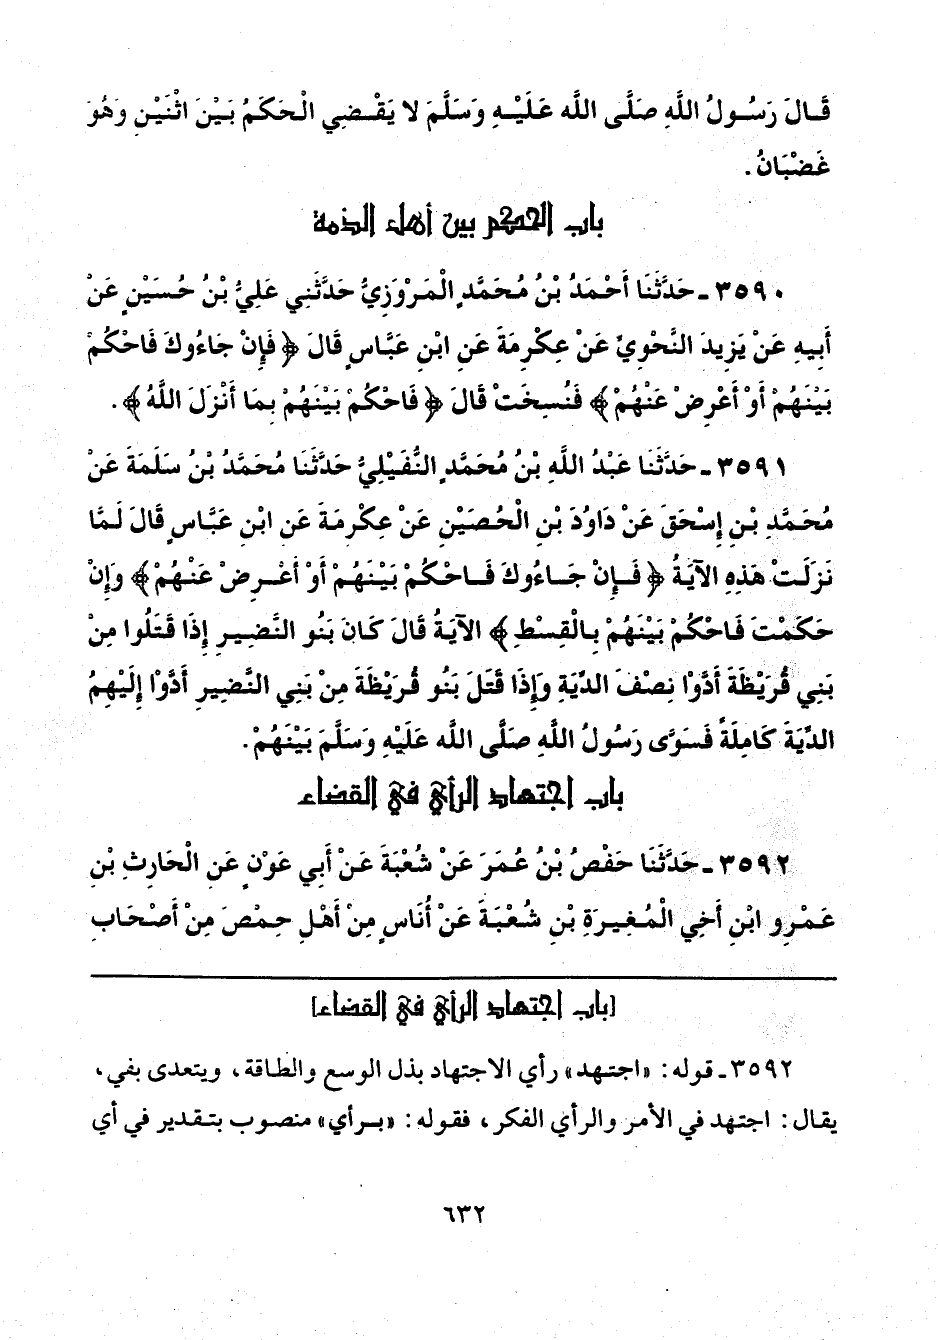 قَالَ رَسُولُ اللَّهِ صَلَّى اللَّه عَلَيْهِ وَسَلَّمَ لا يَقْضِي الْحَكَمُ بَيْنَ اثْنَيْنِ وَهُوَ
غَضْبَانُ.
باب الحكم بين أهل الذمة
٣٥٩٠ ـ حَدَّثَنَا أَحْمَدُ بْنُ مُحَمَّدٍ الْمَرْوَزِيُّ حَدَّثَنِي عَلِيُّ بْنُ حُسَيْنٍ عَنْ
أَبِيهِ عَنْ يَزِيدَ النَّحْوِيِّ عَنْ عِكْرِمَةَ عَنِ ابْنِ عَبَّاسٍ قَالَ ﴿ فَإِنْ جَاءُوكَ فَاحْكُمْ
بَيْنَهُمْ أَوْ أَعْرِضْ عَنْهُمْ ﴾ فَنُسِخَتْ قَالَ ﴿ فَاحْكُمْ بَيْنَهُمْ بِمَا أَنْزَلَ اللَّهُ ﴾.
٣٥٩١ ـ حَدَّثَنَا عَبْدُ اللَّهِ بْنُ مُحَمَّدٍ النُّفَيْلِيُّ حَدَّثَنَا مُحَمَّدُ بْنُ سَلَمَةَ عَنْ
مُحَمَّدِ بْنِ إِسْحَقَ عَنْ دَاوُدَ بْنِ الْحُصَيْنِ عَنْ عِكْرِمَةَ عَنِ ابْنِ عَبَّاسٍ قَالَ لَمَّا
نَزَلَتْ هَذِهِ الآيَةُ ﴿ فَإِنْ جَاءُوكَ فَاحْكُمْ بَيْنَهُمْ أَوْ أَعْرِضْ عَنْهُمْ ﴾ وَإِنْ
حَكَمْتَ فَاحْكُمْ بَيْنَهُمْ بِالْقِسْطِ ﴾ الآيَةُ قَالَ كَانَ بَنُو النَّضِيرِ إِذَا قَتَلُوا مِنْ
بَنِي قُرَيْظَةَ أَدَّوْا نِصْفَ الدِّيَةِ وَإِذَا قَتَلَ بَنُو قُرَيْظَةَ مِنْ بَنِي النَّضِيرِ أَدَّوْا إِلَيْهِمُ
الدِّيَةَ كَامِلَةً فَسَوَّى رَسُولُ اللَّهِ صَلَّى اللَّه عَلَيْهِ وَسَلَّمَ بَيْنَهُمْ.
باب اجتهاد الرأي في القضاء
٣٥٩٢ ـ حَدَّثَنَا حَفْصُ بْنُ عُمَرَ عَنْ شُعْبَةَ عَنْ أَبِي عَوْنٍ عَنِ الْحَارِثِ بْنِ
عَمْرِو ابْنِ أَخِي الْمُغِيرَةِ بْنِ شُعْبَةَ عَنْ أُنَاسٍ مِنْ أَهْلِ حِمْصَ مِنْ أَصْحَابِ
[باب اجتهاد الرأي في القضاء]
٣٥٩٢ ـ قوله: «اجتهد» رأي الاجتهاد بذل الوسع والطاقة، ويتعدى بفي،
يقال: اجتهد في الأمر والرأي الفكر، فقوله: «برأي» منصوب بتقدير في أي
٦٣٢